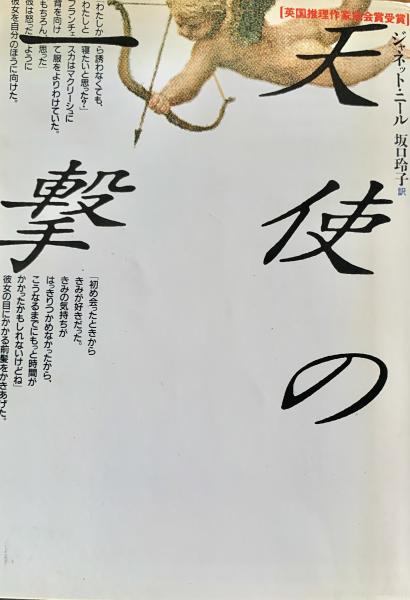 [英国推理作家協会賞受賞]
ジャネット・ニール 坂口玲子 訳
天使の
一撃
「わたしから誘わなくても、
わたしと寝たいと思った?」
フランチェスカはマクリーシュに
背を向けて服をよりわけていた。
「もちろん、思った」
彼は怒ったように
彼女を自分のほうに向けた。
「初め会ったときから
きみが好きだった。
きみの気持ちが
はっきりつかめなかったから、
こうなるまでにもっと時間が
かかったかもしれないけどね」
彼女の目にかかる前髪をかきあげた。